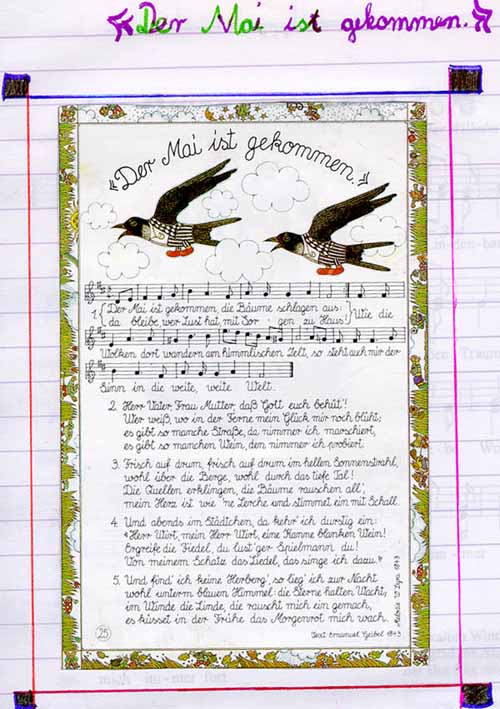 Der Mai ist gekommen.
"Der Mai ist gekommen."
1. Der Mai ist gekommen, die Bäume schlagen aus: Wie die
da bleibe, wer Lust hat, mit Sor gen zu Haus!
Wolken dort wandern am himmlischen Zelt, so steht auch mir der
Sinn in die weite, weite Welt.
2. Herr Vater, Frau Mutter, daß Gott euch behüt'!
Wer weiß, wo in der Ferne mein Glück mir noch blüht;
es gibt so manche Straße, da nimmer ich marschiert,
es gibt so manchen Wein, den nimmer ich probiert.
3. Frisch auf drum, frisch auf drum im hellen Sonnenstrahl,
wohl über die Berge, wohl durch das tiefe Tal!
Die Quellen erklingen, die Bäume rauschen all',
mein Herz ist wie 'ne Lerche und stimmet ein mit Schall.
4. Und abends im Städtchen, da kehr' ich durstig ein:
"Herr Wirt, mein Herr Wirt, eine Kanne blanken Wein!
Ergreife die Fiedel, du lust'ger Spielmann du!
Von meinem Schatz das Liedel, das singe ich dazu."
5. Und find' ich keine Herberg', so lieg' ich zur Nacht
wohl unterm blauen Himmel: die Sterne halten Wacht;
im Winde die Linde, die rauscht mich ein gemach,
es küsset in der Frühe das Morgenrot mich wach.
Melodie: W. Lyra 1843
25
Text: Emanuel Geibel 1843
mich im-mer fort